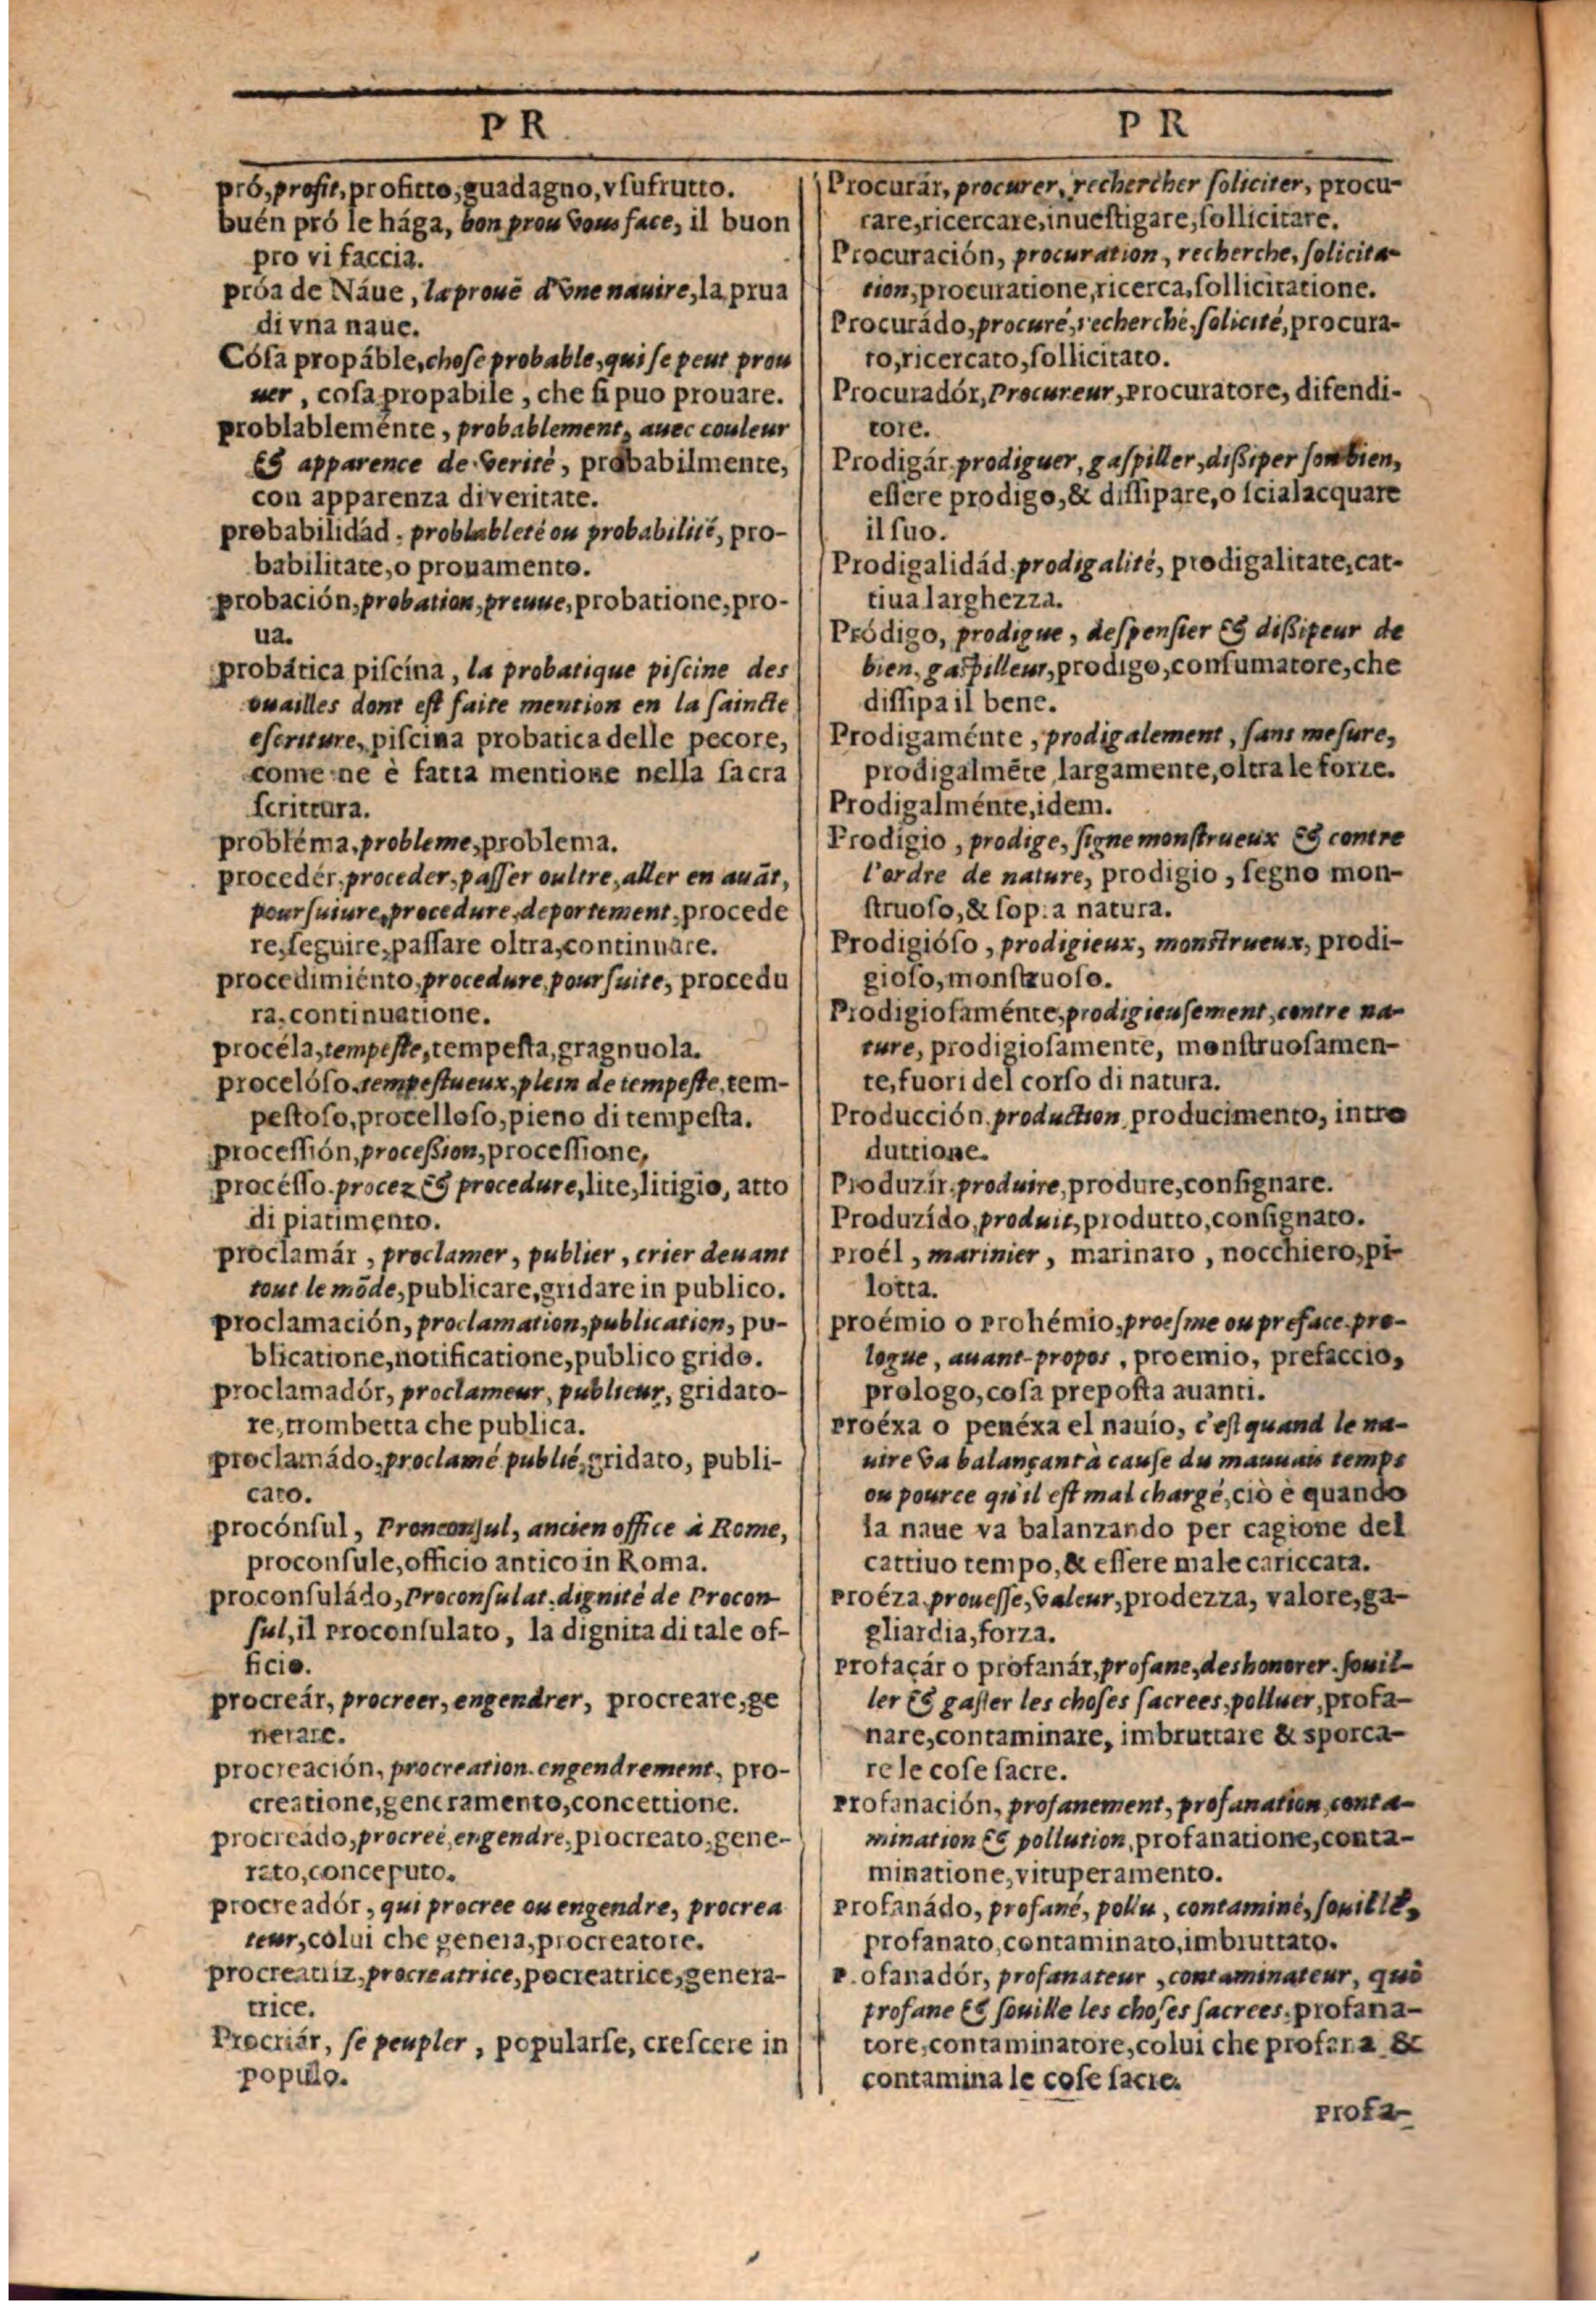 P R
pró, profit, profitto, guadagno, vſufrutto.
buén pró le hága, bon prou vous face, il buon
pro vi faccia.
próa de Náue, la prouë d'vne nauire, la prua
di vna naue.
Cóſa propáble, choſe probable, qui ſe peut prou
uer, coſa propabile, che ſi puo prouare.
problableménte, probablement, auec couleur
& apparence de verité, probabilmente,
con apparenza di veritate.
probabilidád, problableté ou probabilité, pro-
babilitate, o prouamento.
probación, probation, preuue, probatione, pro-
ua.
probática piſcína, la probatique piſcine des
ouailles dont eſt faite mention en la ſaincte
eſcriture, piſcina probatica delle pecore,
come ne è fatta mentione nella ſacra
ſcrittura.
probléma, probleme, problema.
procedér, proceder, paſſer oultre, aller en auāt,
pourſuiure, procedure, deportement, procede
re, ſeguire, paſſare oltra, continuare.
procedimiénto, procedure, pourſuite, procedu
ra, continuatione.
procéla, tempeſte, tempeſta, gragnuola.
procelóſo, tempeſtueux, plein de tempeſte, tem-
peſtoſo, procelloſo, pieno di tempeſta.
proceſſión, proceſsion, proceſſione,
procéſſo, procez & procedure, lite, litigio, atto
di piatimento.
proclamár, proclamer, publier, crier deuant
tout le mōde, publicare, gridare in publico.
proclamación, proclamation, publication, pu-
blicatione, notificatione, publico grido.
proclamadór, proclameur, publieur, gridato-
re, trombetta che publica.
proclamádo, proclamé publié, gridato, publi-
cato.
procónſul, Pronconſul, ancien office à Rome,
proconſule, officio antico in Roma.
proconſuládo, Proconſulat, dignité de Procon-
ſul, il proconſulato, la dignita di tale of-
ficio.
procreár, procreer, engendrer, procreare, ge
nerare.
procreación, procreation, engendrement, pro-
creatione, generamento, concettione.
procreádo, procreé, engendre, procreato, gene-
rato, conceputo.
procreadór, qui procree ou engendre, procrea
teur, colui che genera, procreatore.
procreatriz, procreatrice, pocreatrice, genera-
trice.
Procriár, ſe peupler, popularſe, creſcere in
populo.
P R
Procurár, procurer, rechercher ſoliciter, procu-
rare, ricercare, inueſtigare, ſollicitare.
Procuración, procuration, recherche, ſolicita-
tion, procuratione, ricerca, ſollicitatione.
Procurádo, procuré, recherché, ſolicité, procura-
to, ricercato, ſollicitato.
Procuradór, Procureur, procuratore, difendi-
tore.
Prodigár, prodiguer, gaſpiller, diſsiper ſon bien,
eſſere prodigo, & diſſipare, o ſcialacquare
il ſuo.
Prodigalidád, prodigalité, prodigalitate, cat-
tiua larghezza.
Pródigo, prodigue, deſpenſier & diſsipeur de
bien, gaſpilleur, prodigo, conſumatore, che
diſſipa il bene.
Prodigaménte, prodigalement, ſans meſure,
prodigalmēte largamente, oltra le forze.
Prodigalménte, idem.
Prodigio, prodige, ſigne monſtrueux & contre
l'ordre de nature, prodigio, ſegno mon-
ſtruoſo, & ſop. a natura.
Prodigióſo, prodigieux, monſtrueux, prodi-
gioſo, monſtruoſo.
Prodigioſaménte, prodigieuſement, contre na-
ture, prodigioſamente, monſtruoſamen-
te, fuori del corſo di natura.
Producción, production, producimento, intro
duttione.
Produzír, produire, produre, conſignare.
Produzído, produit, produtto, conſignato.
proél, marinier, marinaro, nocchiero, pi-
lotta.
proémio o prohémio, proeſme ou preface, pro-
logue, auant-propos, proemio, prefaccio,
prologo, coſa prepoſta auanti.
proéxa o penéxa el nauío, c'eſt quand le na-
uire va balançant à cauſe du mauuais temps
ou pource qu'il eſt mal chargé, ciò è quando
la naue va balanzando per cagione del
cattiuo tempo, & eſſere male cariccata.
proéza, proueſſe, valeur, prodezza, valore, ga-
gliardia, forza.
profaçár o profanár, profane, deshonorer, ſouil-
ler & gaſter les choſes ſacrees, polluer, profa-
nare, contaminare, imbruttare & sporca-
re le coſe ſacre.
profanación, profanement, profanation, conta-
mination & pollution, profanatione, conta-
minatione, vituperamento.
profanádo, profané, pollu, contaminé, ſouillé,
profanato, contaminato, imbruttato.
p.ofanadór, profanateur, contaminateur, qui
profane & ſouille les choſes ſacrees, profana-
tore, contaminatore, colui che profana &
contamina le coſe ſacre.
profa-